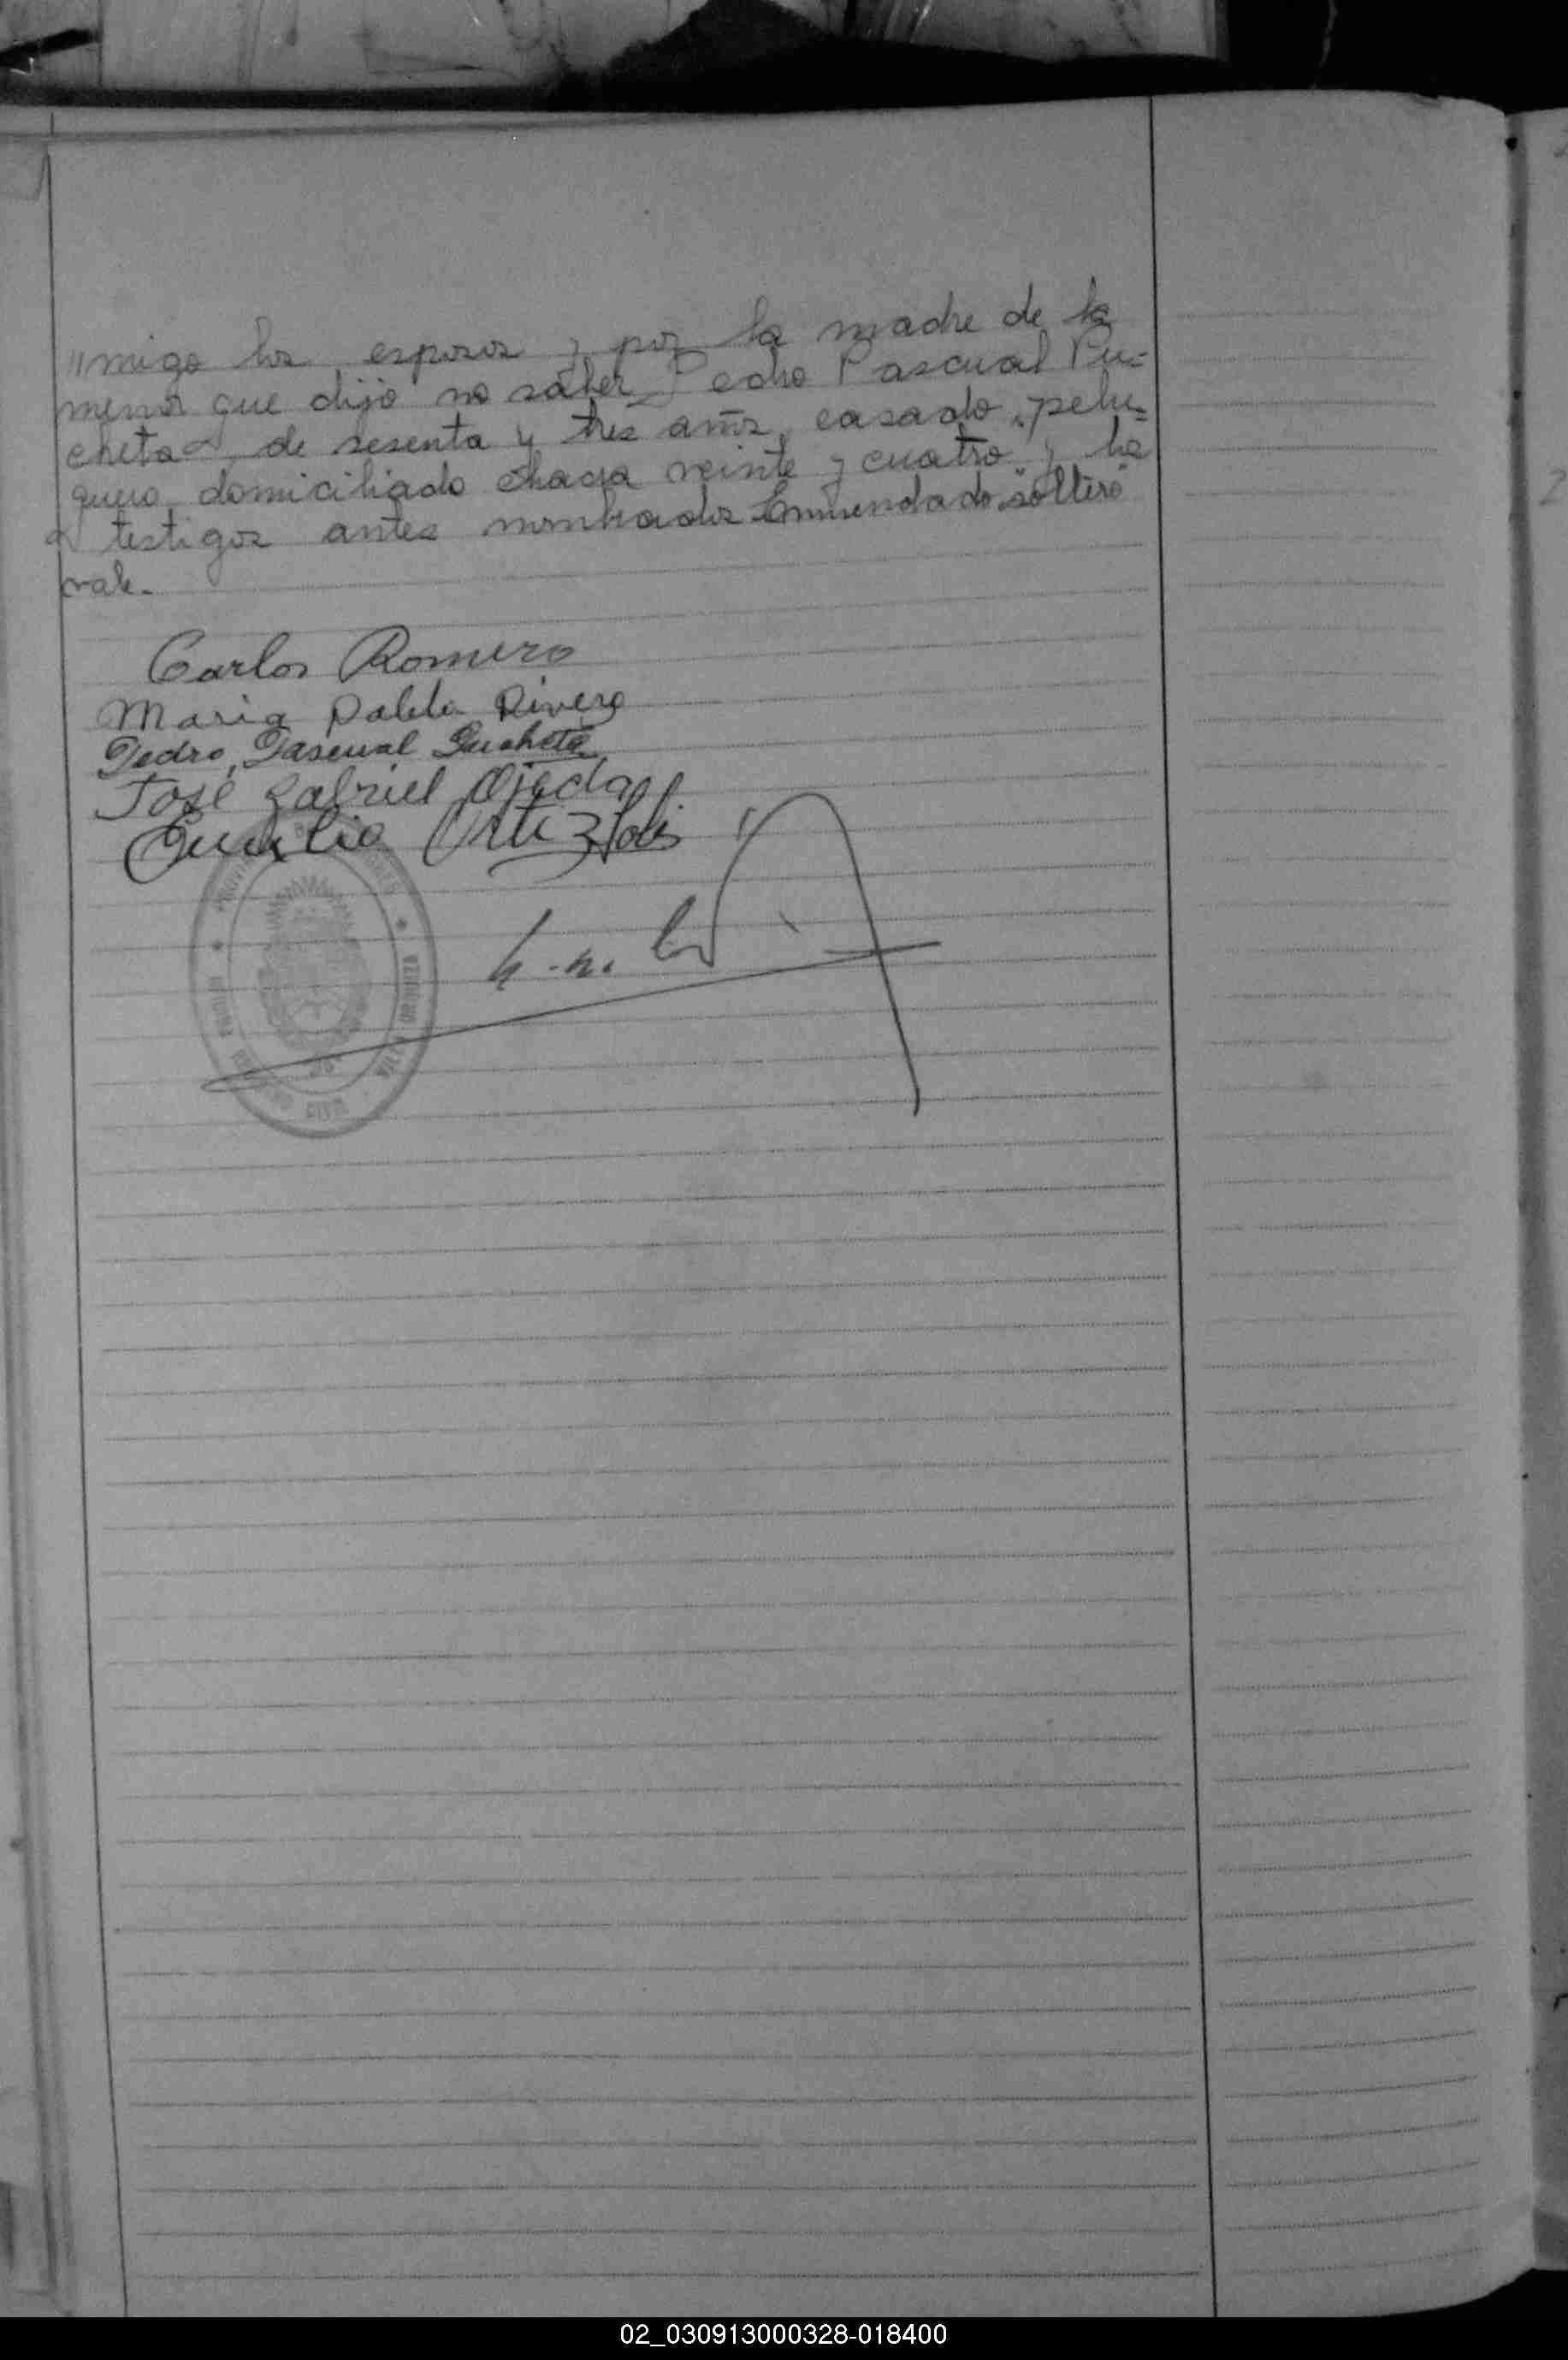 "migo los esposos y por la madre de la
menor que dijo no saber Pedro Pascual Pu=
cheta, de sesenta y tres años, casado, pelu=
quero, domiciliado chacra veinte y cuatro y los
testigos antes nombrados Enmendado "soltero"
vale.
Carlos Romero
Maria Dalila Rivero
Pedro Pascual Pucheta
José Gabriel Ojeda
Ortiz
OFICINA REGISTRO CIVIL VILLA URQUIZA
02_030913000328-018400